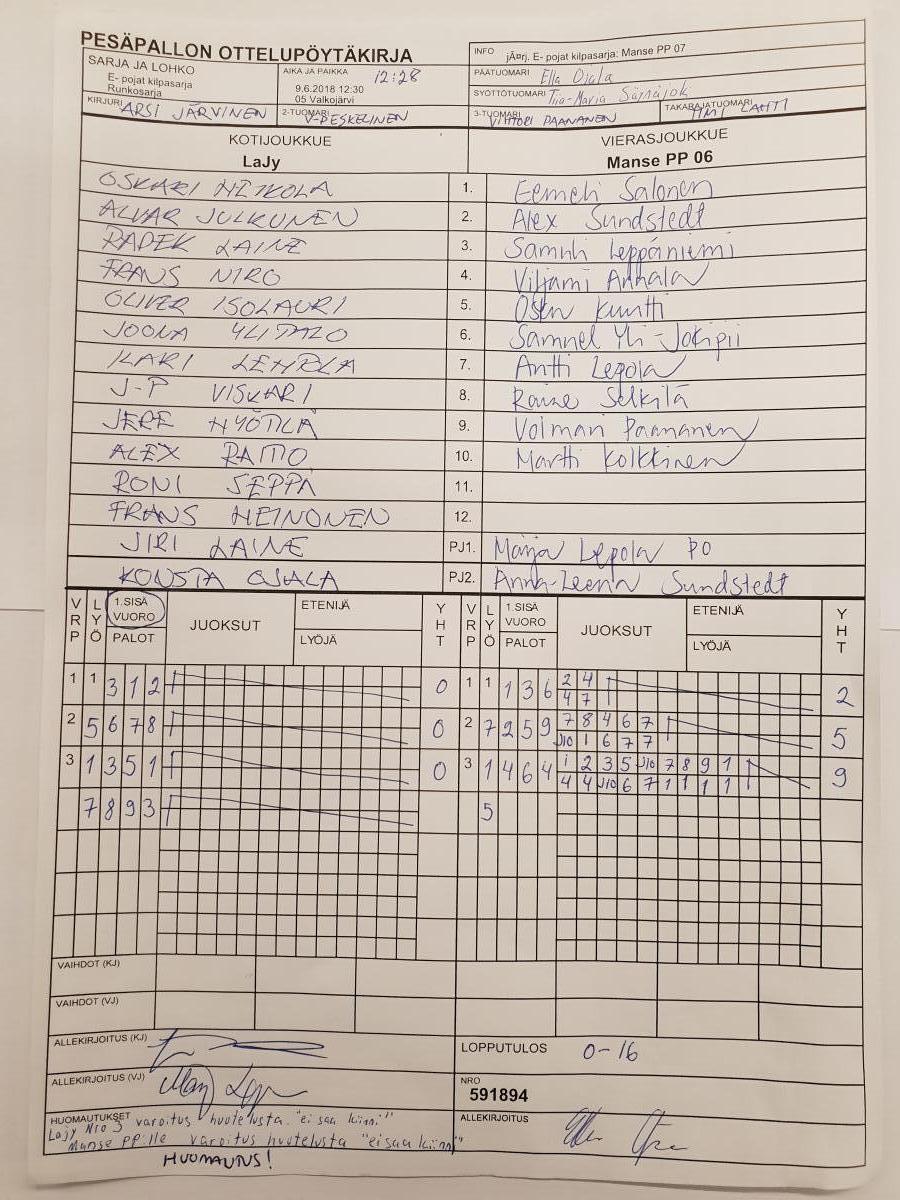 PESÄPALLON OTTELUPÖYTÄKIRJA
INFO jÃ¤rj. E- pojat kilpasarja: Manse PP 07
SARJA JA LOHKO
E- pojat kilpasarja
Runkosarja
AIKA JA PAIKKA 12:28
9.6.2018 12:30
05 Valkojärvi
PÄÄTUOMARI Ella Ojala
SYÖTTÖTUOMARI Tiia-Maria
KIRJURI ARSI JÄRVINEN
2-TUOMARI V-P ESKELINEN
3-TUOMARI VIHTORI PAANANEN
TAKARAJATUOMARI LAHTI
KOTIJOUKKUE
LaJy
VIERASJOUKKUE
Manse PP 06
OSKARI HEIKOLA 1. Eemeli Salonen
ALVAR JULKUNEN 2. Alex Sundstedt
RADEK LAINE 3. Samuli Leppäniemi
FRANS NIRO 4. Viljami Annala
OLIVER ISOLAURI 5. Kuntti
JOONA YLITALO 6. Samuel Yli-Jokipii
ILARI 7. Antti Lepola
J-P VISKARI 8. Selkilä
JERE HYÖTLÄ 9. Voimari Paananen
ALEX RAITIO 10. Martti Kolkkinen
RONI SEPPÄ 11.
FRANS HEINONEN 12.
JIRI LAINE PJ1. Marja Lepola PO
KONSTA OJALA PJ2. Anna-Leena Sundstedt
VRP LYÖ 1.SISÄ VUORO PALOT JUOKSUT ETENIJÄ LYÖJÄ YHT VRP LYÖ 1.SISÄ VUORO PALOT JUOKSUT ETENIJÄ LYÖJÄ YHT
1 1 3 1 2 0 1 1 1 3 6 2 4 2
4 7
2 5 6 7 8 0 2 7 2 5 9 7 8 4 6 7 5
J10 1 6 7 7
3 1 3 5 1 0 3 1 4 6 4 1 2 3 5 J10 7 8 9 1 9
4 4 J10 6 7 1 1 1 1
7 8 9 3 5
VAIHDOT (KJ)
VAIHDOT (VJ)
ALLEKIRJOITUS (KJ)
LOPPUTULOS 0-16
ALLEKIRJOITUS (VJ)
NRO
591894
HUOMAUTUKSET varoitus huutelusta "ei saa kiinni"
LaJy Nro 3
Manse PP:lle varoitus huutelusta "ei saa kiinni"
HUOMAUTUS!
ALLEKIRJOITUS